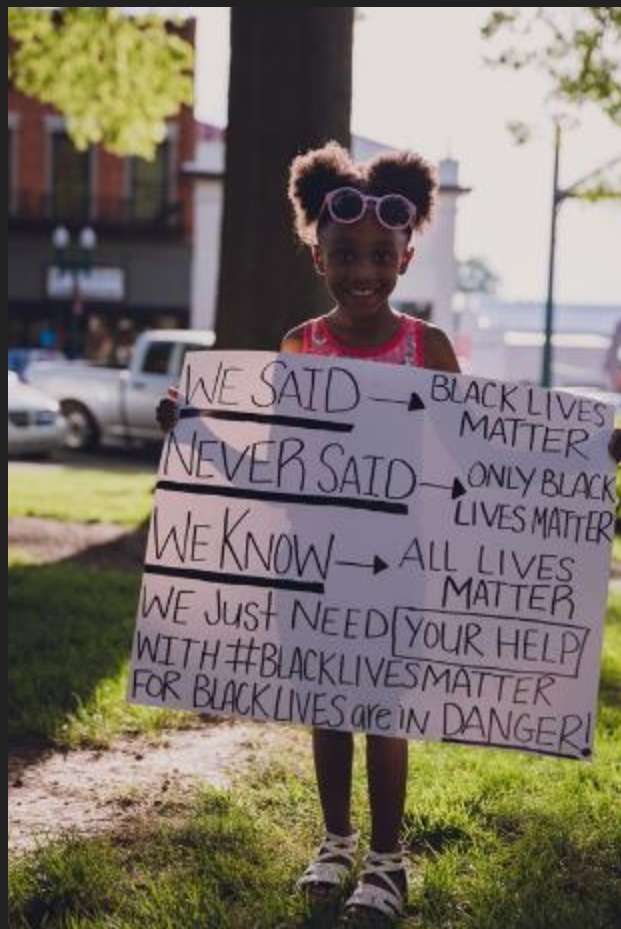 WE SAID → BLACK LIVES
MATTER
NEVER SAID → ONLY BLACK
LIVES MATTER
WE KNOW → ALL LIVES
MATTER
WE JUST NEED YOUR HELP
WITH #BLACKLIVESMATTER
FOR BLACK LIVES are IN DANGER!